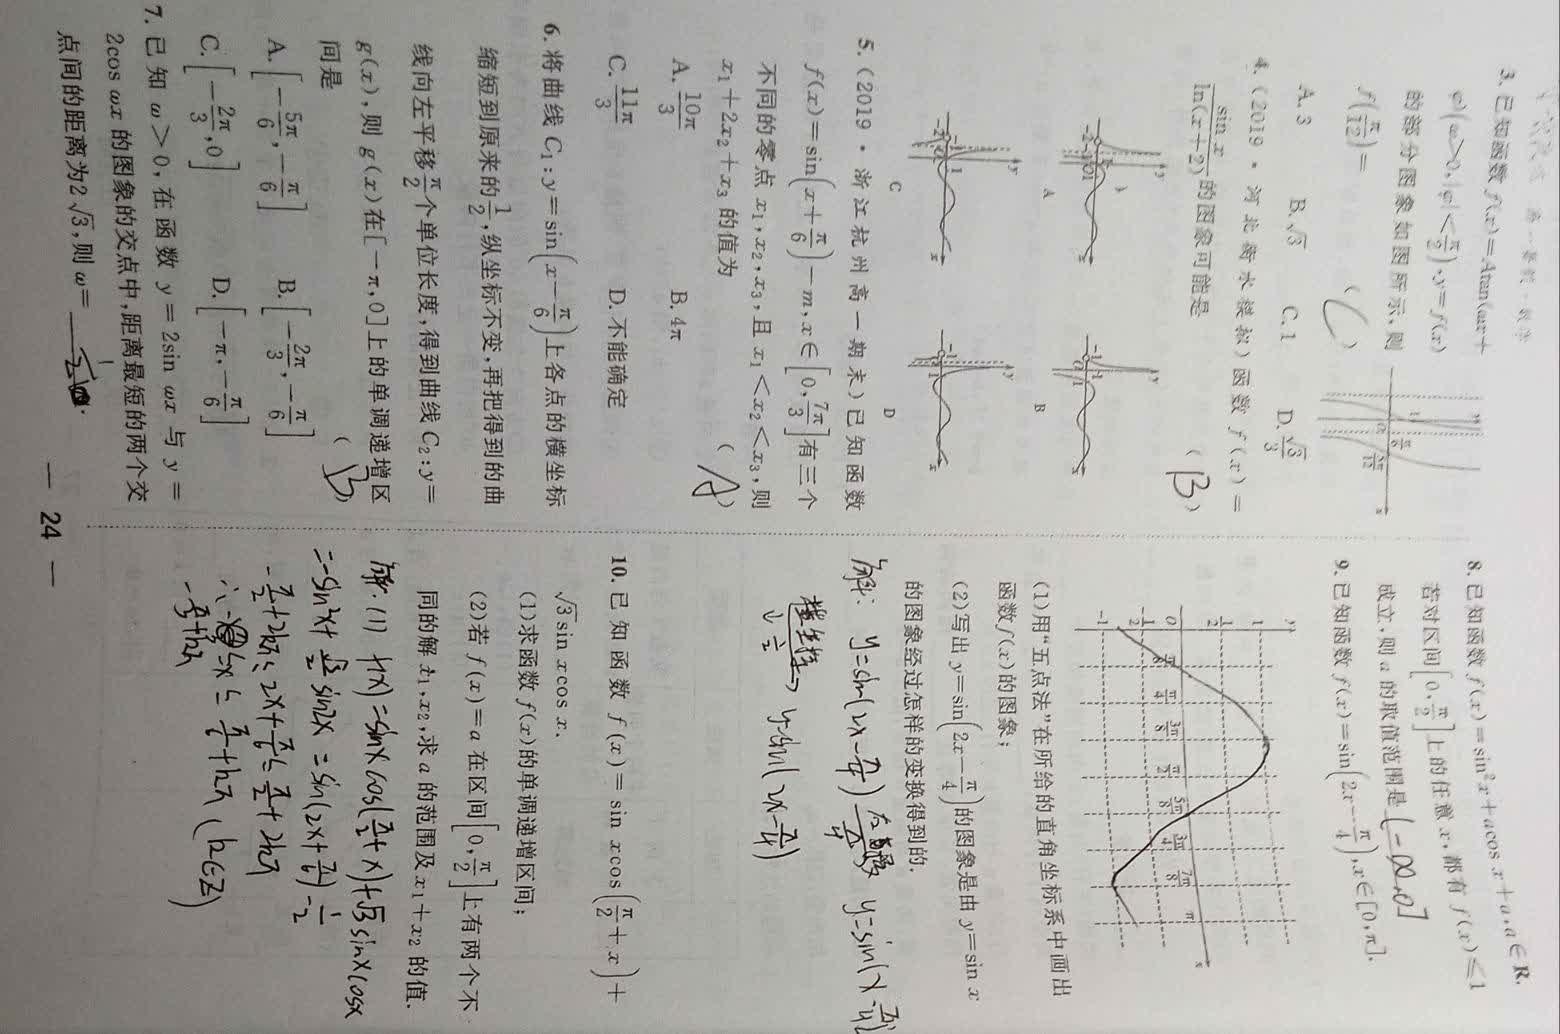 3. 已知函数 f(x)=Atan(ωx+
φ)(ω>0,|φ|<π/2),y=f(x)
的部分图象如图所示,则
f(π/12)= ( C )
A. 3 B. √3 C. 1 D. √3/3
y
1
O
π/8
3π/8
x
4. (2019·河北衡水模拟)函数 f(x)=
sin x/ln(x+2) 的图象可能是 ( B )
A
B
C
D
5. (2019·浙江杭州高一期末)已知函数
f(x)=sin(x+π/6)-m,x∈[0,7π/3]有三个
不同的零点 x₁,x₂,x₃,且 x₁<x₂<x₃,则
x₁+2x₂+x₃ 的值为 ( A )
A. 10π/3 B. 4π
C. 11π/3 D. 不能确定
6. 将曲线 C₁:y=sin(x-π/6)上各点的横坐标
缩短到原来的1/2,纵坐标不变,再把得到的曲
线向左平移π/2个单位长度,得到曲线 C₂:y=
g(x),则 g(x)在[-π,0]上的单调递增区
间是 ( B )
A. [-5π/6,-π/6] B. [-2π/3,-π/6]
C. [-2π/3,0] D. [-π,-π/6]
7. 已知 ω>0,在函数 y=2sin ωx 与 y=
2cos ωx 的图象的交点中,距离最短的两个交
点间的距离为2√3,则 ω=
— 24 —
8. 已知函数 f(x)=sin²x+acos x+a,a∈R.
若对区间[0,π/2]上的任意 x,都有 f(x)≤1
成立,则 a 的取值范围是 (-∞,0]
9. 已知函数 f(x)=sin(2x-π/4),x∈[0,π].
y
1
1/2
O
-1/2
-1
π/8 π/4 3π/8 π/2 5π/8 3π/4 7π/8 π x
(1)用“五点法”在所给的直角坐标系中画出
函数 f(x)的图象;
(2)写出 y=sin(2x-π/4)的图象是由 y=sin x
的图象经过怎样的变换得到的.
解: y=sin(2x-π/4) π/4 y=sin(x-π/4)
横坐标
↓ 1/2 → y=sin(2x-π/4)
10. 已知函数 f(x)=sin xcos(π/2+x)+
√3sin xcos x.
(1)求函数 f(x)的单调递增区间;
(2)若 f(x)=a 在区间[0,π/2]上有两个不
同的解 x₁,x₂,求 a 的范围及 x₁+x₂ 的值.
解:(1) f(x)=sinxcos(π/2+x)+√3sinxcosx
=-sin²x+√3/2sin2x=sin(2x+π/6)-1/2
-π/2+2kπ≤2x+π/6≤π/2+2kπ
≤x≤π/6+kπ (k∈Z)
-π/3+kπ